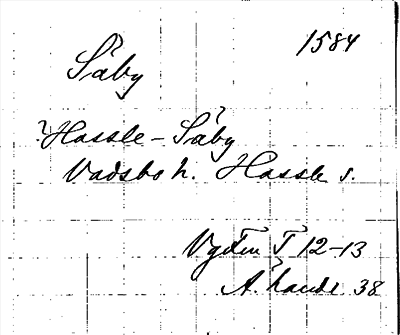 1584
Säby
? Hassle-Säby
Vadsbo h. Hassle s.
T 12-13
A. handl. 38